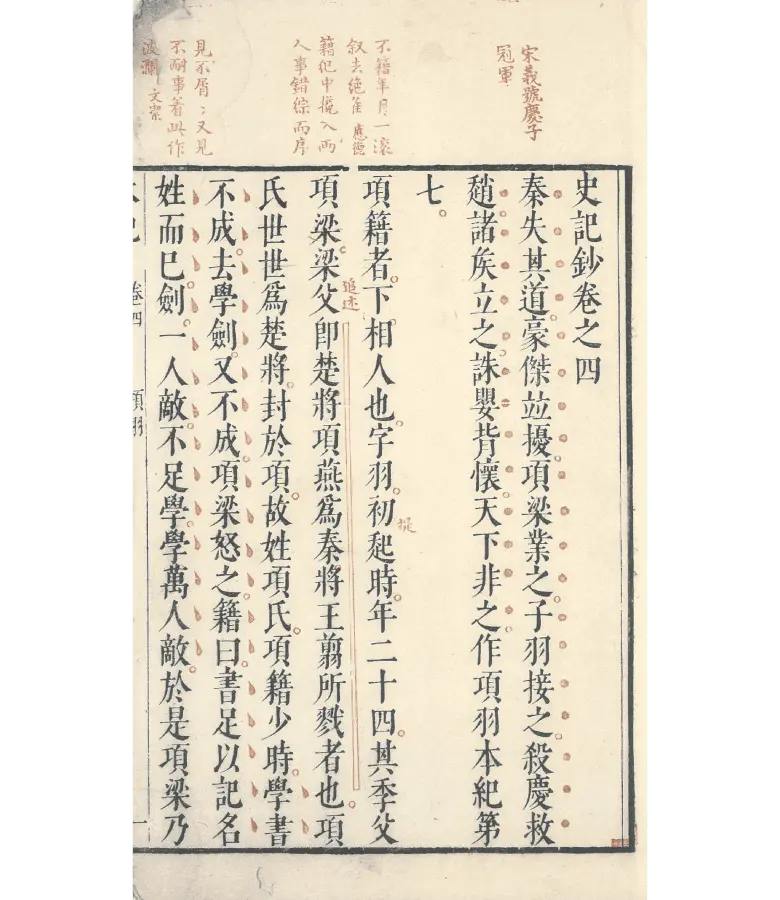 宋義號慶子
冠軍
不籍年月一滾
叙去絶佳
籍犯中攙入兩
人事錯綜而序
見不屑〻又見
不耐事着此作
波瀾
史記鈔卷之四
秦失其道豪傑竝擾項梁業之子羽接之殺慶救
趙諸矦立之誅嬰背懷天下非之作項羽本紀第
七
項籍者下相人也字羽初起時年二十四其季父
項梁梁父卽楚將項燕爲秦將王翦所戮者也項
追述
氏世世爲楚將封於項故姓項氏項籍少時學書
不成去學劍又不成項梁怒之籍曰書足以記名
姓而已劍一人敵不足學學萬人敵於是項梁乃
卷四
項羽
一